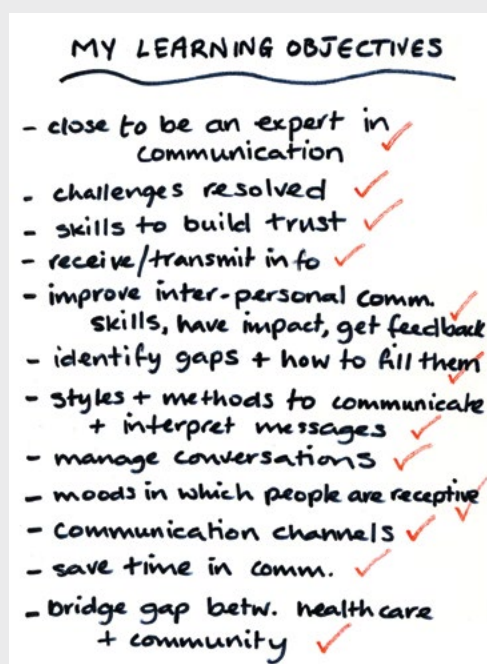 MY LEARNING OBJECTIVES
- close to be an expert in
communication
- challenges resolved
- skills to build trust
- receive/transmit info
- improve inter-personal comm.
skills, have impact, get feedback
- identify gaps + how to fill them
- styles + methods to communicate
+ interpret messages
- manage conversations
- moods in which people are receptive
- communication channels
- save time in comm.
- bridge gap betw. healthcare
+ community